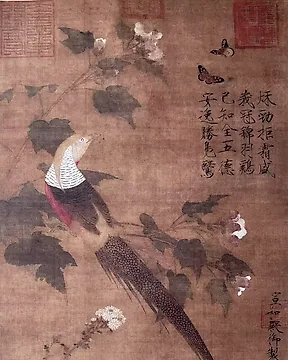 秋勁拒霜盛
峩冠錦羽鷄
已知全五德
安逸勝鳧鷖
宣和殿御製